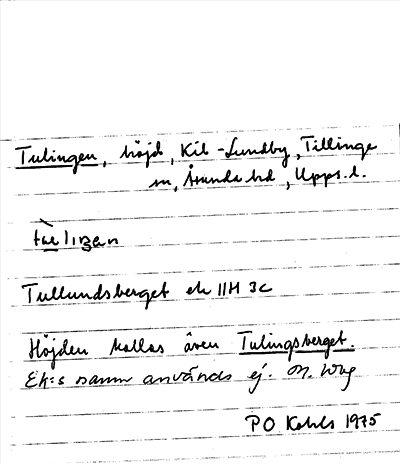 Tulingen, höjd, Kil-Lundby, Tillinge
sn, Åsunda hd, Upps. l.
Tullundsberget ek 11H 3c
Höjden kallas även Tulingsberget.
Ek:s namn används ej.
P O Kohls 1975